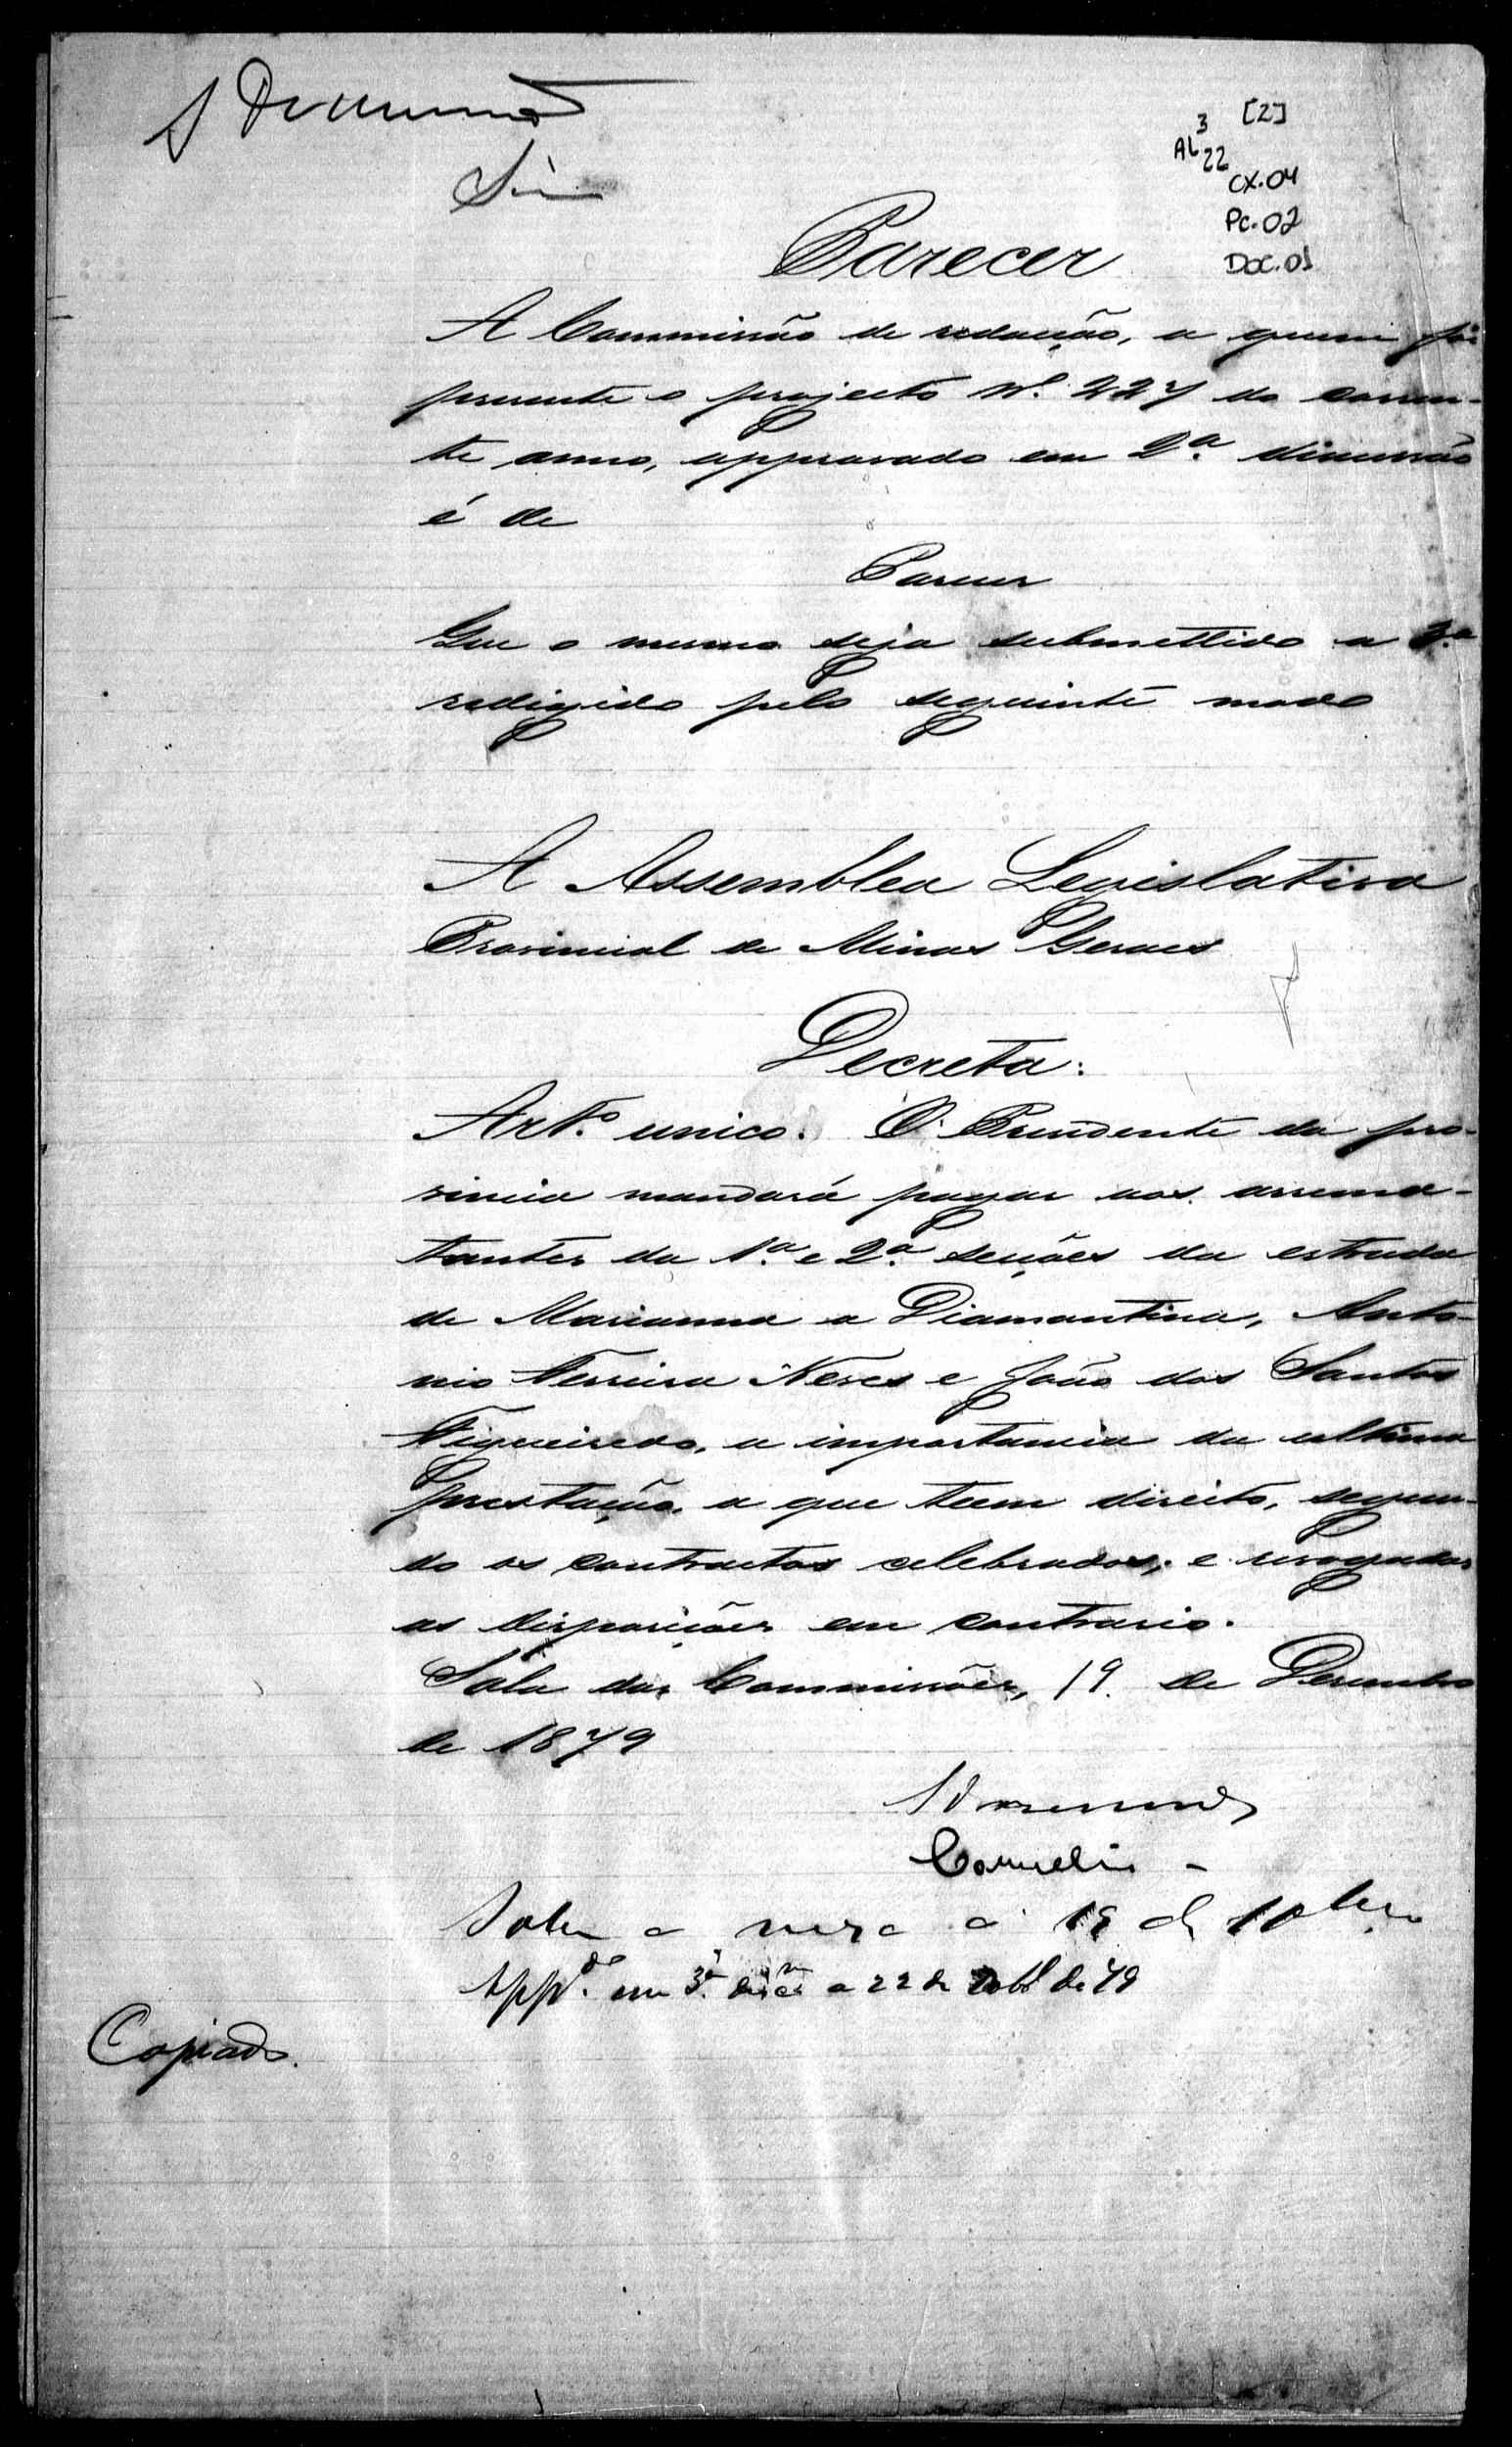 [2]
3
AL 22
CX.04
Pc.02
Doc.01
Parecer
A Commissão de redacção, a quem foi
presente o projecto Nº 227 do corren-
te anno, approvado em 2.ª discussão
é de
Parecer
Que o mesmo seja submettido a 3.ª
redigido pelo seguinte modo
A Assemblea Legislativa
Provincial de Minas Geraes
Decreta:
Art.º unico. O Presidente da pro-
vincia mandará pagar aos arrema-
tantes da 1.ª e 2.ª secções da estrada
de Marianna a Diamantina, Anto-
nio Ferreira Neves e João dos Santos
Figueiredo, a importancia da ultima
prestação, a que teem direito, segun-
do os contractos celebrados; e revogadas
as disposições em contrario.
Sala das Commissões, 19. de Desembro
de 1879
Drummond
Cornelio -
Sobre a mesa a 19 de 10bro
App.do em 3.ª disão a 22 de 10bro de 79
Copiado.